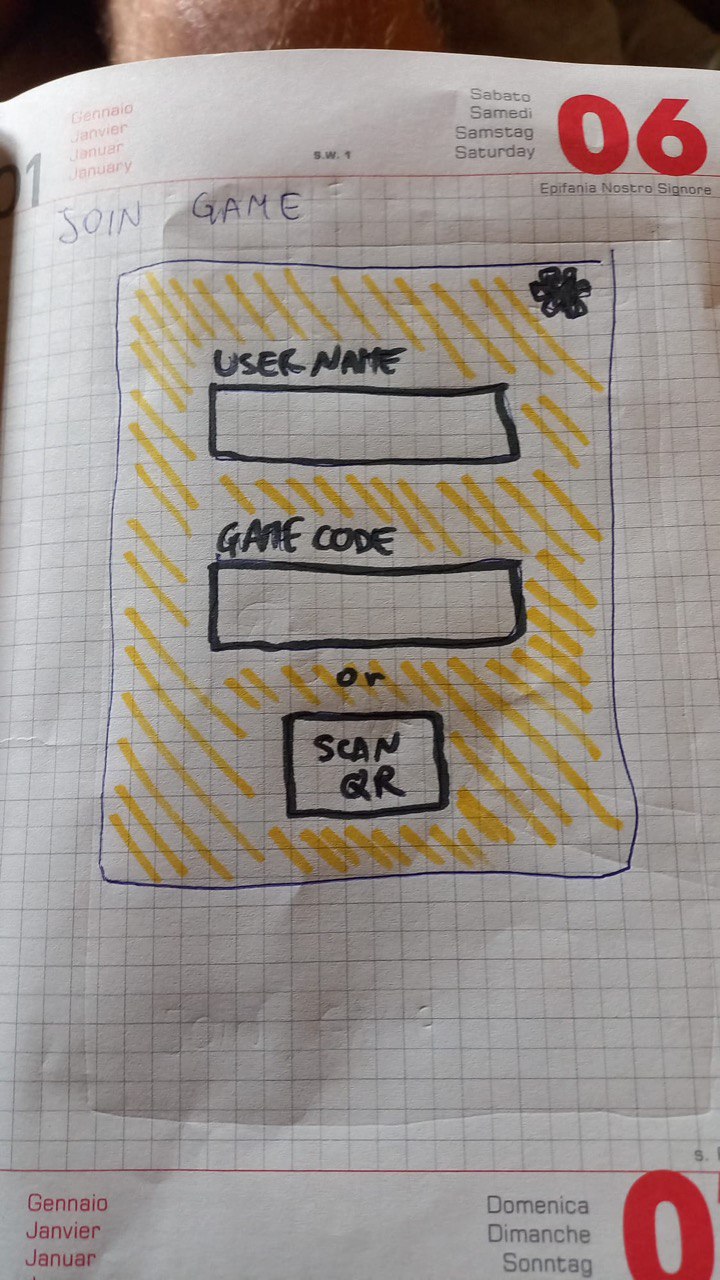 Gennaio
Janvier
Januar
January
01
s.w. 1
Sabato
Samedi
Samstag
Saturday
06
Epifania Nostro Signore
JOIN GAME
USER NAME
GAME CODE
or
SCAN
QR
Gennaio
Janvier
Januar
Domenica
Dimanche
Sonntag